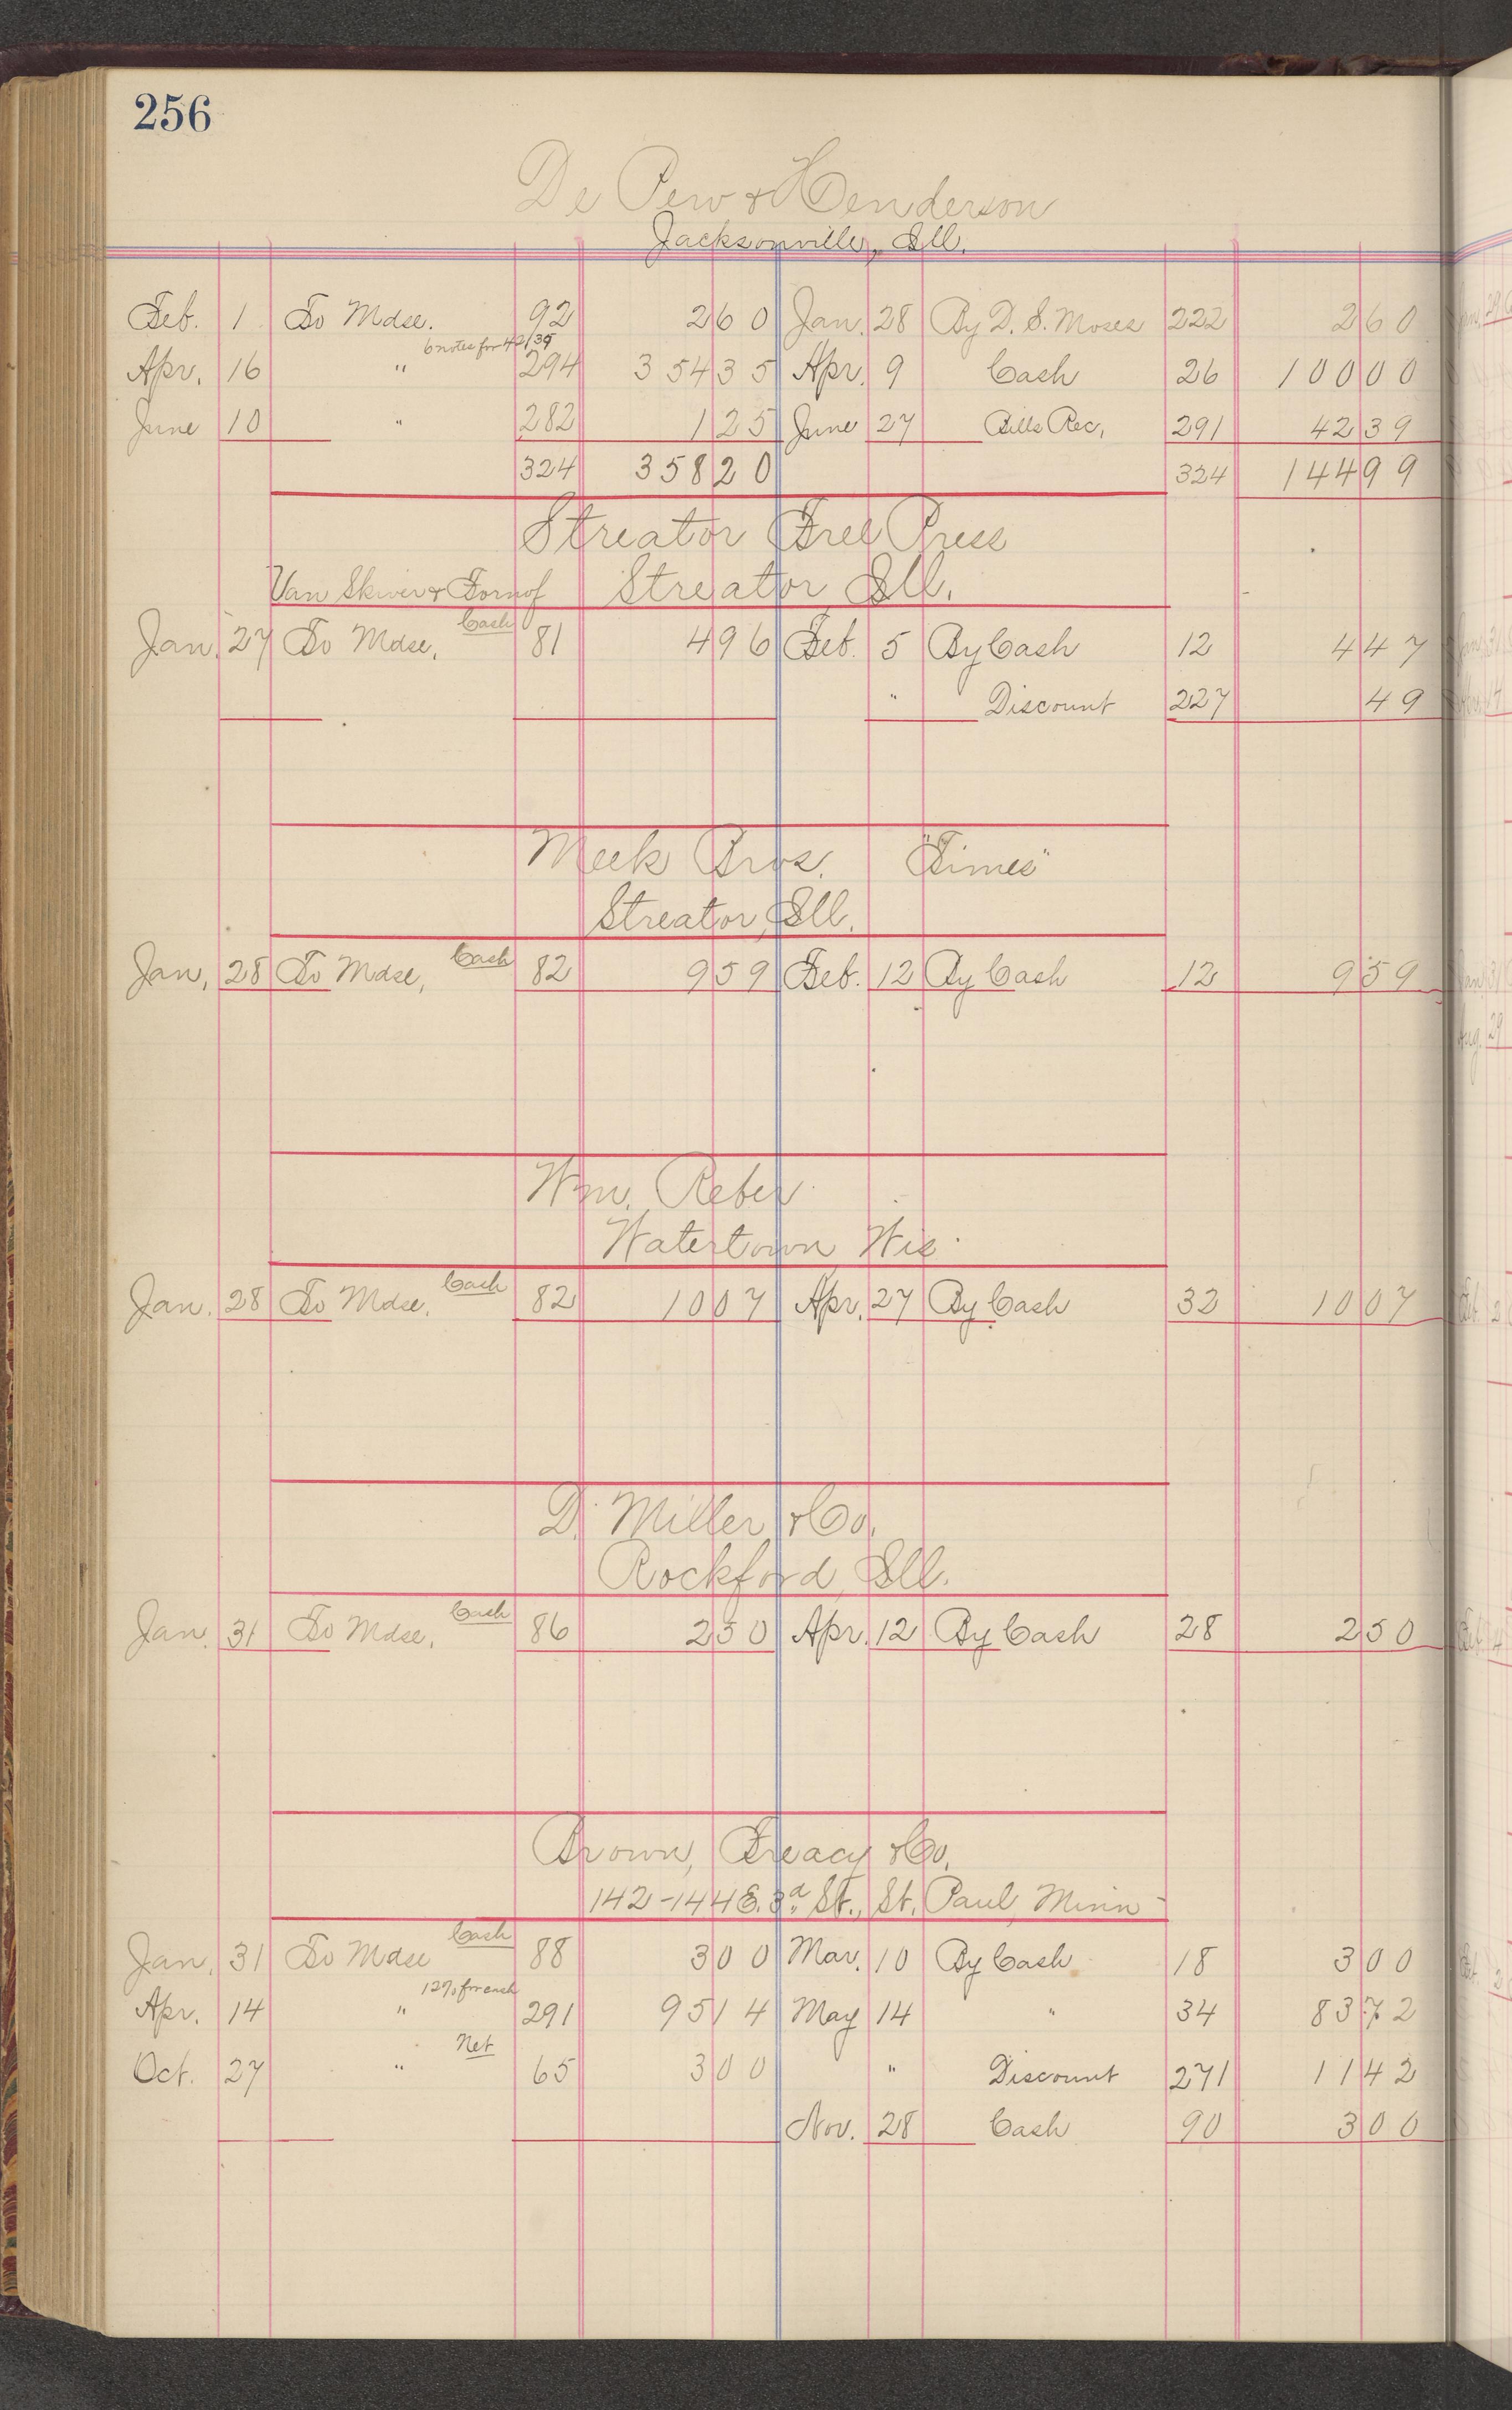 256
De Pew & Henderson
Jacksonville, Ill.
Feb. 1 To Mdse. 92 2 60 Jan. 28 By D. S. Moses 222 2 60
6 notes for 42/39
Apr. 16 " 294 354 35 Apr. 9 Cash 26 100 00
June 10 " 282 1 25 June 27 Bills Rec, 291 42 39
324 358 20 324 144 99
Streator Free Press
Van Skiver & Fornof Streator, Ill.
Jan. 27 To Mdse, Cash 81 4 96 Feb. 5 By Cash 12 4 47
" Discount 227 49
Meek Bros. "Times"
Streator, Ill.
Jan, 28 To Mdse, Cash 82 9 59 Feb. 12 By Cash 12 9 59
Wm. Reber
Watertown Wis.
Jan. 28 To Mdse, Cash 82 10 07 Apr. 27 By Cash 32 10 07
D. Miller & Co.
Rockford, Ill.
Jan. 31 To Mdse, Cash 86 2 50 Apr. 12 By Cash 28 2 50
Brown, Treacy & Co.
142-144 E. 3d St., St. Paul, Minn
Jan. 31 To Mdse Cash 88 3 00 Mar. 10 By Cash 18 3 00
Apr. 14 " 12% for cash 291 95 14 May 14 " 34 83 72
Oct. 27 " Net 65 3 00 " Discount 271 11 42
Nov. 28 Cash 90 3 00